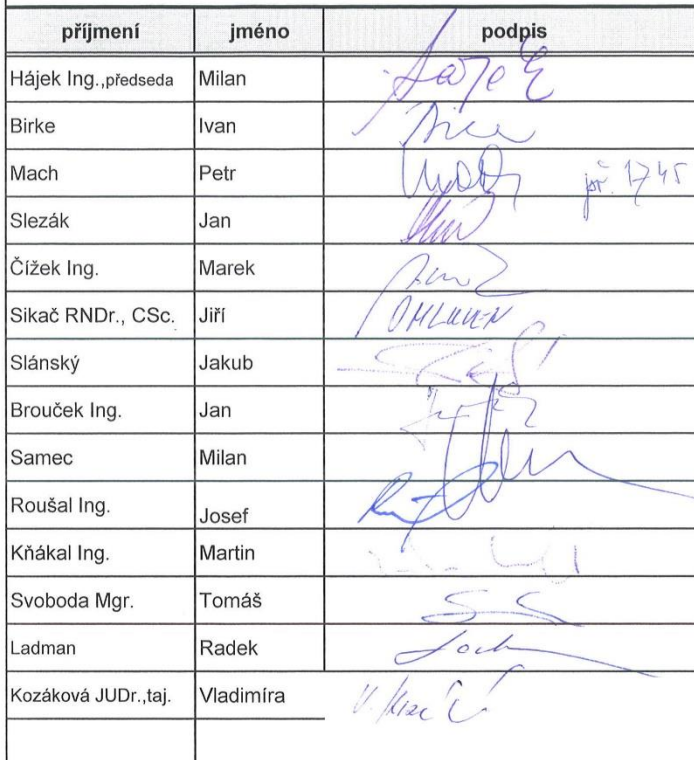 příjmení jméno podpis
Hájek Ing.,předseda Milan Hájek
Birke Ivan
Mach Petr Mach př. 1745
Slezák Jan
Čížek Ing. Marek
Sikač RNDr., CSc. Jiří OMLUVEN
Slánský Jakub
Brouček Ing. Jan
Samec Milan
Roušal Ing. Josef
Kňákal Ing. Martin
Svoboda Mgr. Tomáš
Ladman Radek
Kozáková JUDr.,taj. Vladimíra